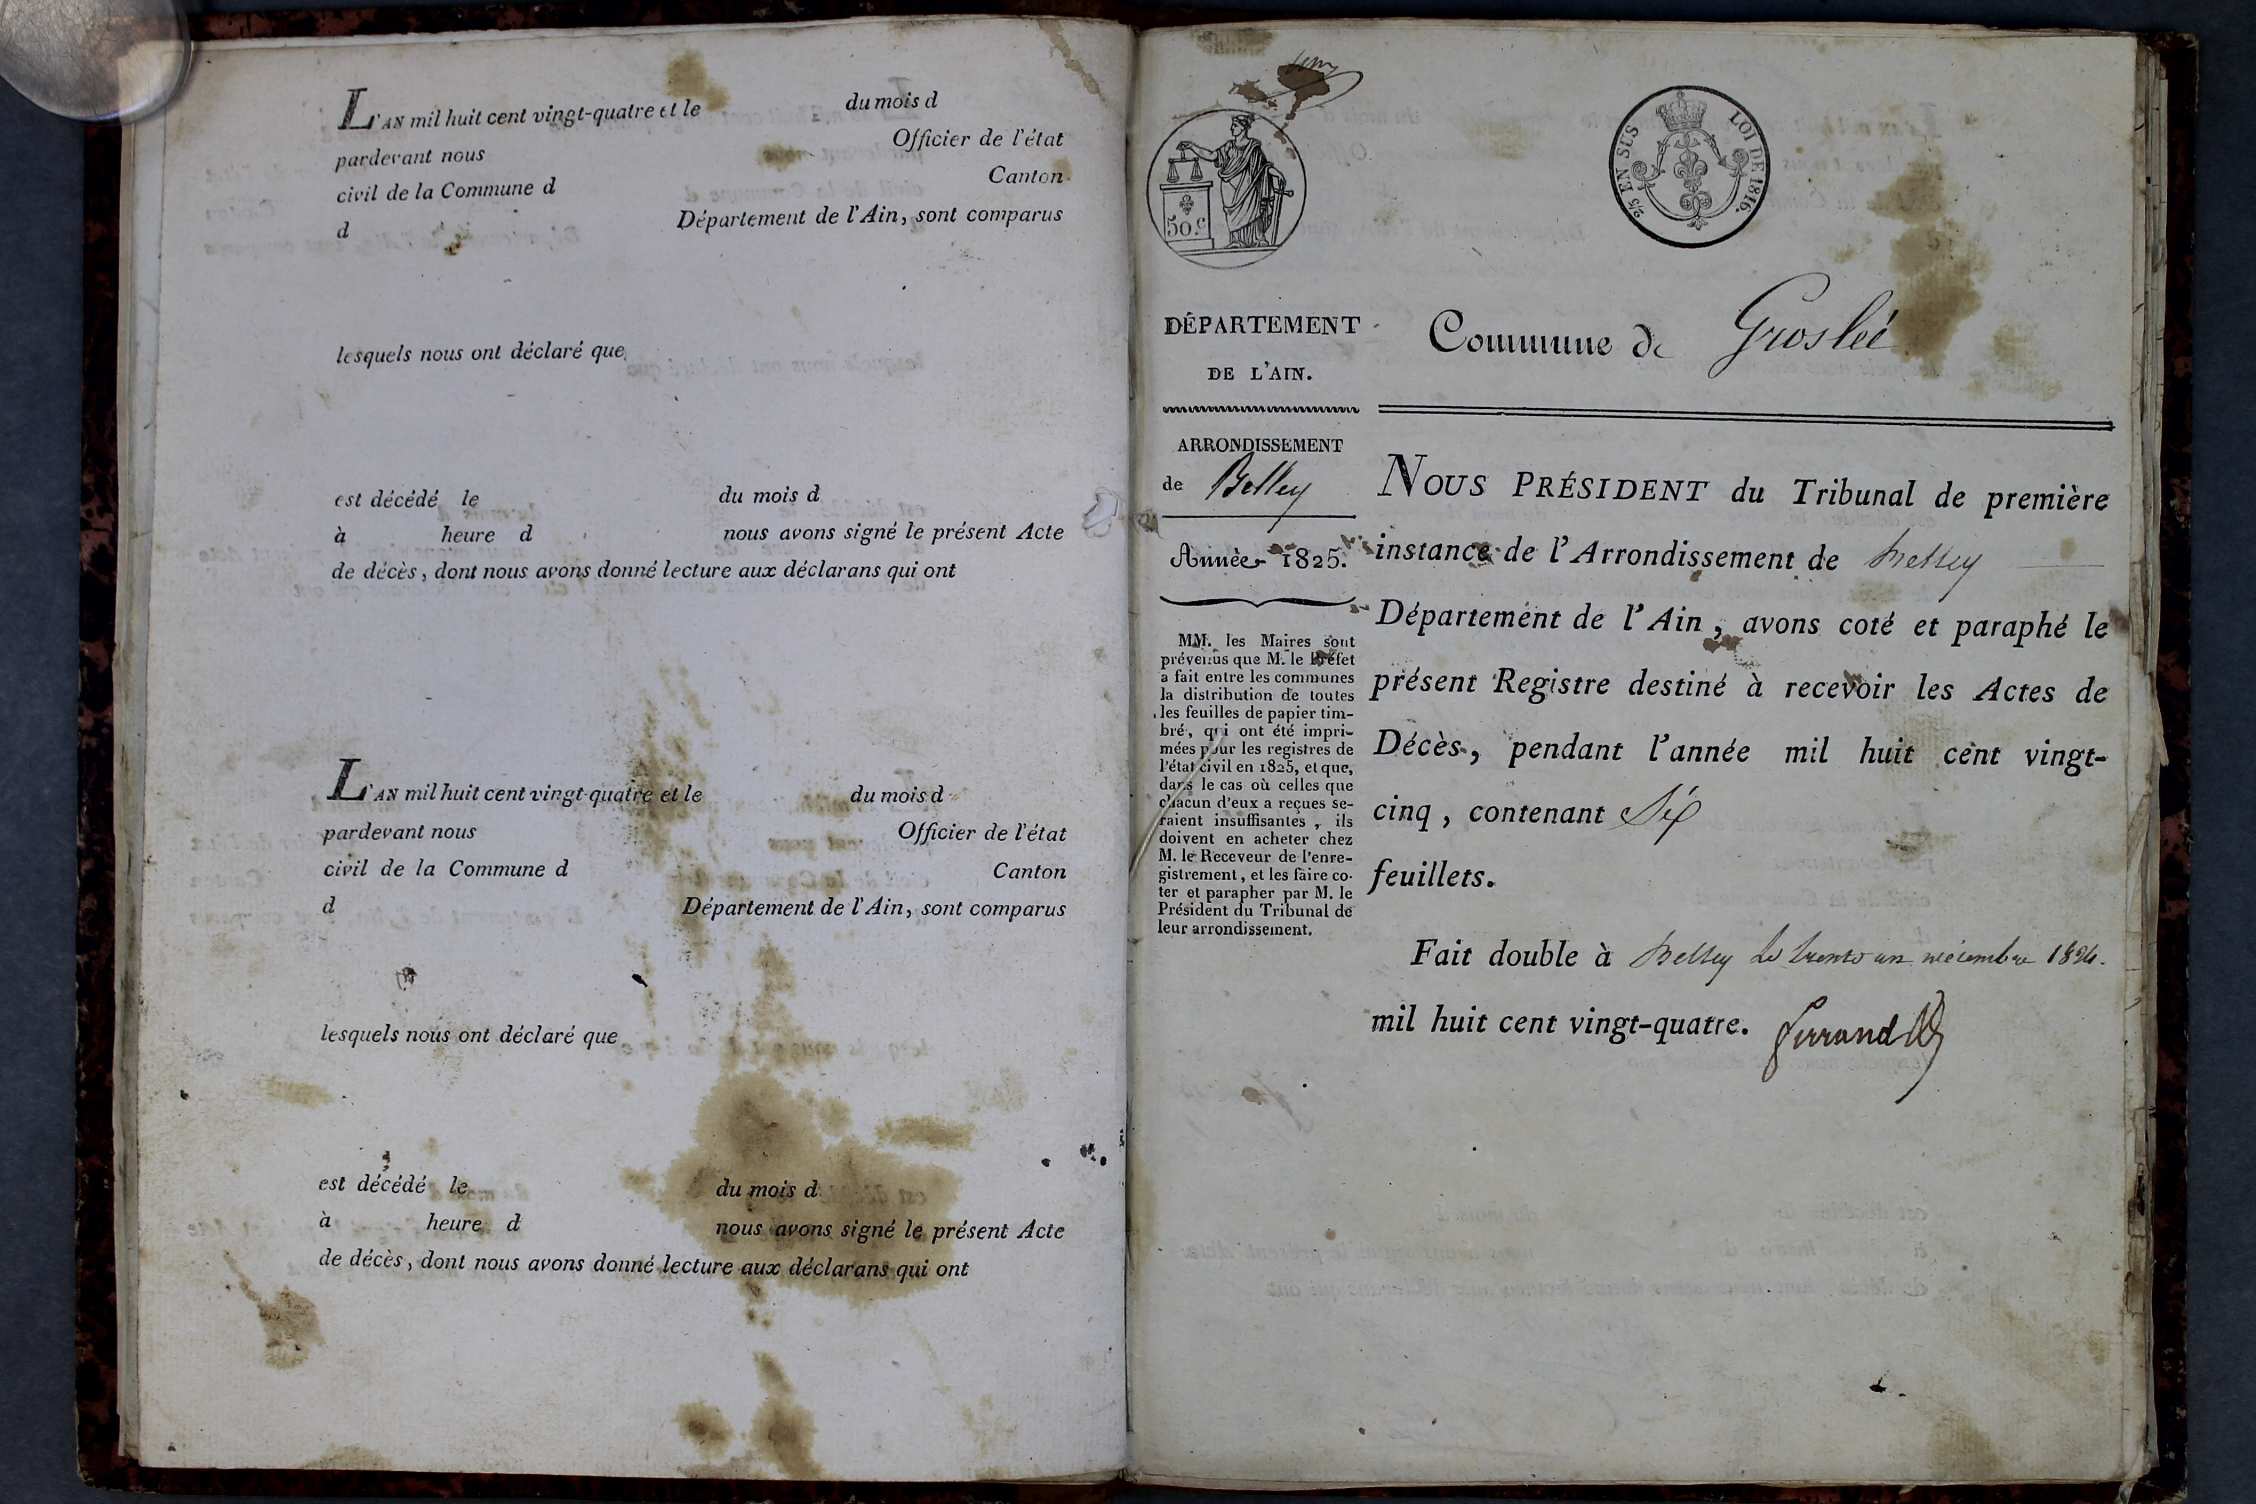 L'AN mil huit cent vingt-quatre et le du mois d
pardevant nous Officier de l'état
civil de la Commune d Canton
d Département de l'Ain, sont comparus
lesquels nous ont déclaré que
est décédé le du mois d
à heure d nous avons signé le présent Acte
de décès, dont nous avons donné lecture aux déclarans qui ont
L'AN mil huit cent vingt-quatre et le du mois d
pardevant nous Officier de l'état
civil de la Commune d Canton
d Département de l'Ain, sont comparus
lesquels nous ont déclaré que
est décédé le du mois d
à heure d nous avons signé le présent Acte
de décès, dont nous avons donné lecture aux déclarans qui ont
50 c.
2/5 EN SUS LOI DE 1816.
DÉPARTEMENT
DE L'AIN.
ARRONDISSEMENT
de Belley
Année 1825.
MM. les Maires sont
prévenus que M. le Préfet
a fait entre les communes
la distribution de toutes
les feuilles de papier tim-
bré, qui ont été impri-
mées pour les registres de
l'état civil en 1825, et que,
dans le cas où celles que
chacun d'eux a reçues se-
raient insuffisantes, ils
doivent en acheter chez
M. le Receveur de l'enre-
gistrement, et les faire co-
ter et parapher par M. le
Président du Tribunal de
leur arrondissement.
Commune de Groslée
NOUS PRÉSIDENT du Tribunal de première
instance de l'Arrondissement de Belley
Département de l'Ain, avons coté et paraphé le
présent Registre destiné à recevoir les Actes de
Décès, pendant l'année mil huit cent vingt-
cinq, contenant Six
feuillets.
Fait double à Belley le trente un décembre 1824.
mil huit cent vingt-quatre. Ferrand